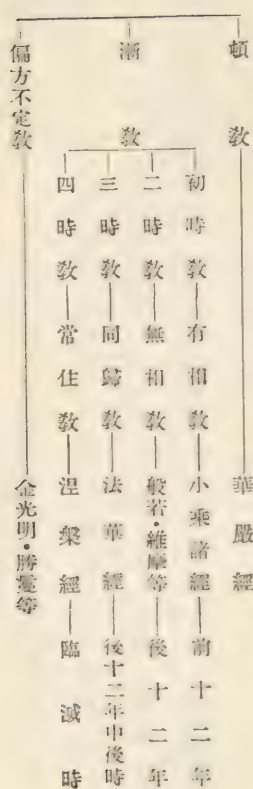 頓教──華嚴經
漸教
初時教──有相教──小乘諸經──前十二年
二時教──無相教──般若・維摩等──後十二年
三時教──同歸教──法華經──後十二年中後時
四時教──常住教──涅槃經──臨滅時
偏方不定教──金光明・勝鬘等